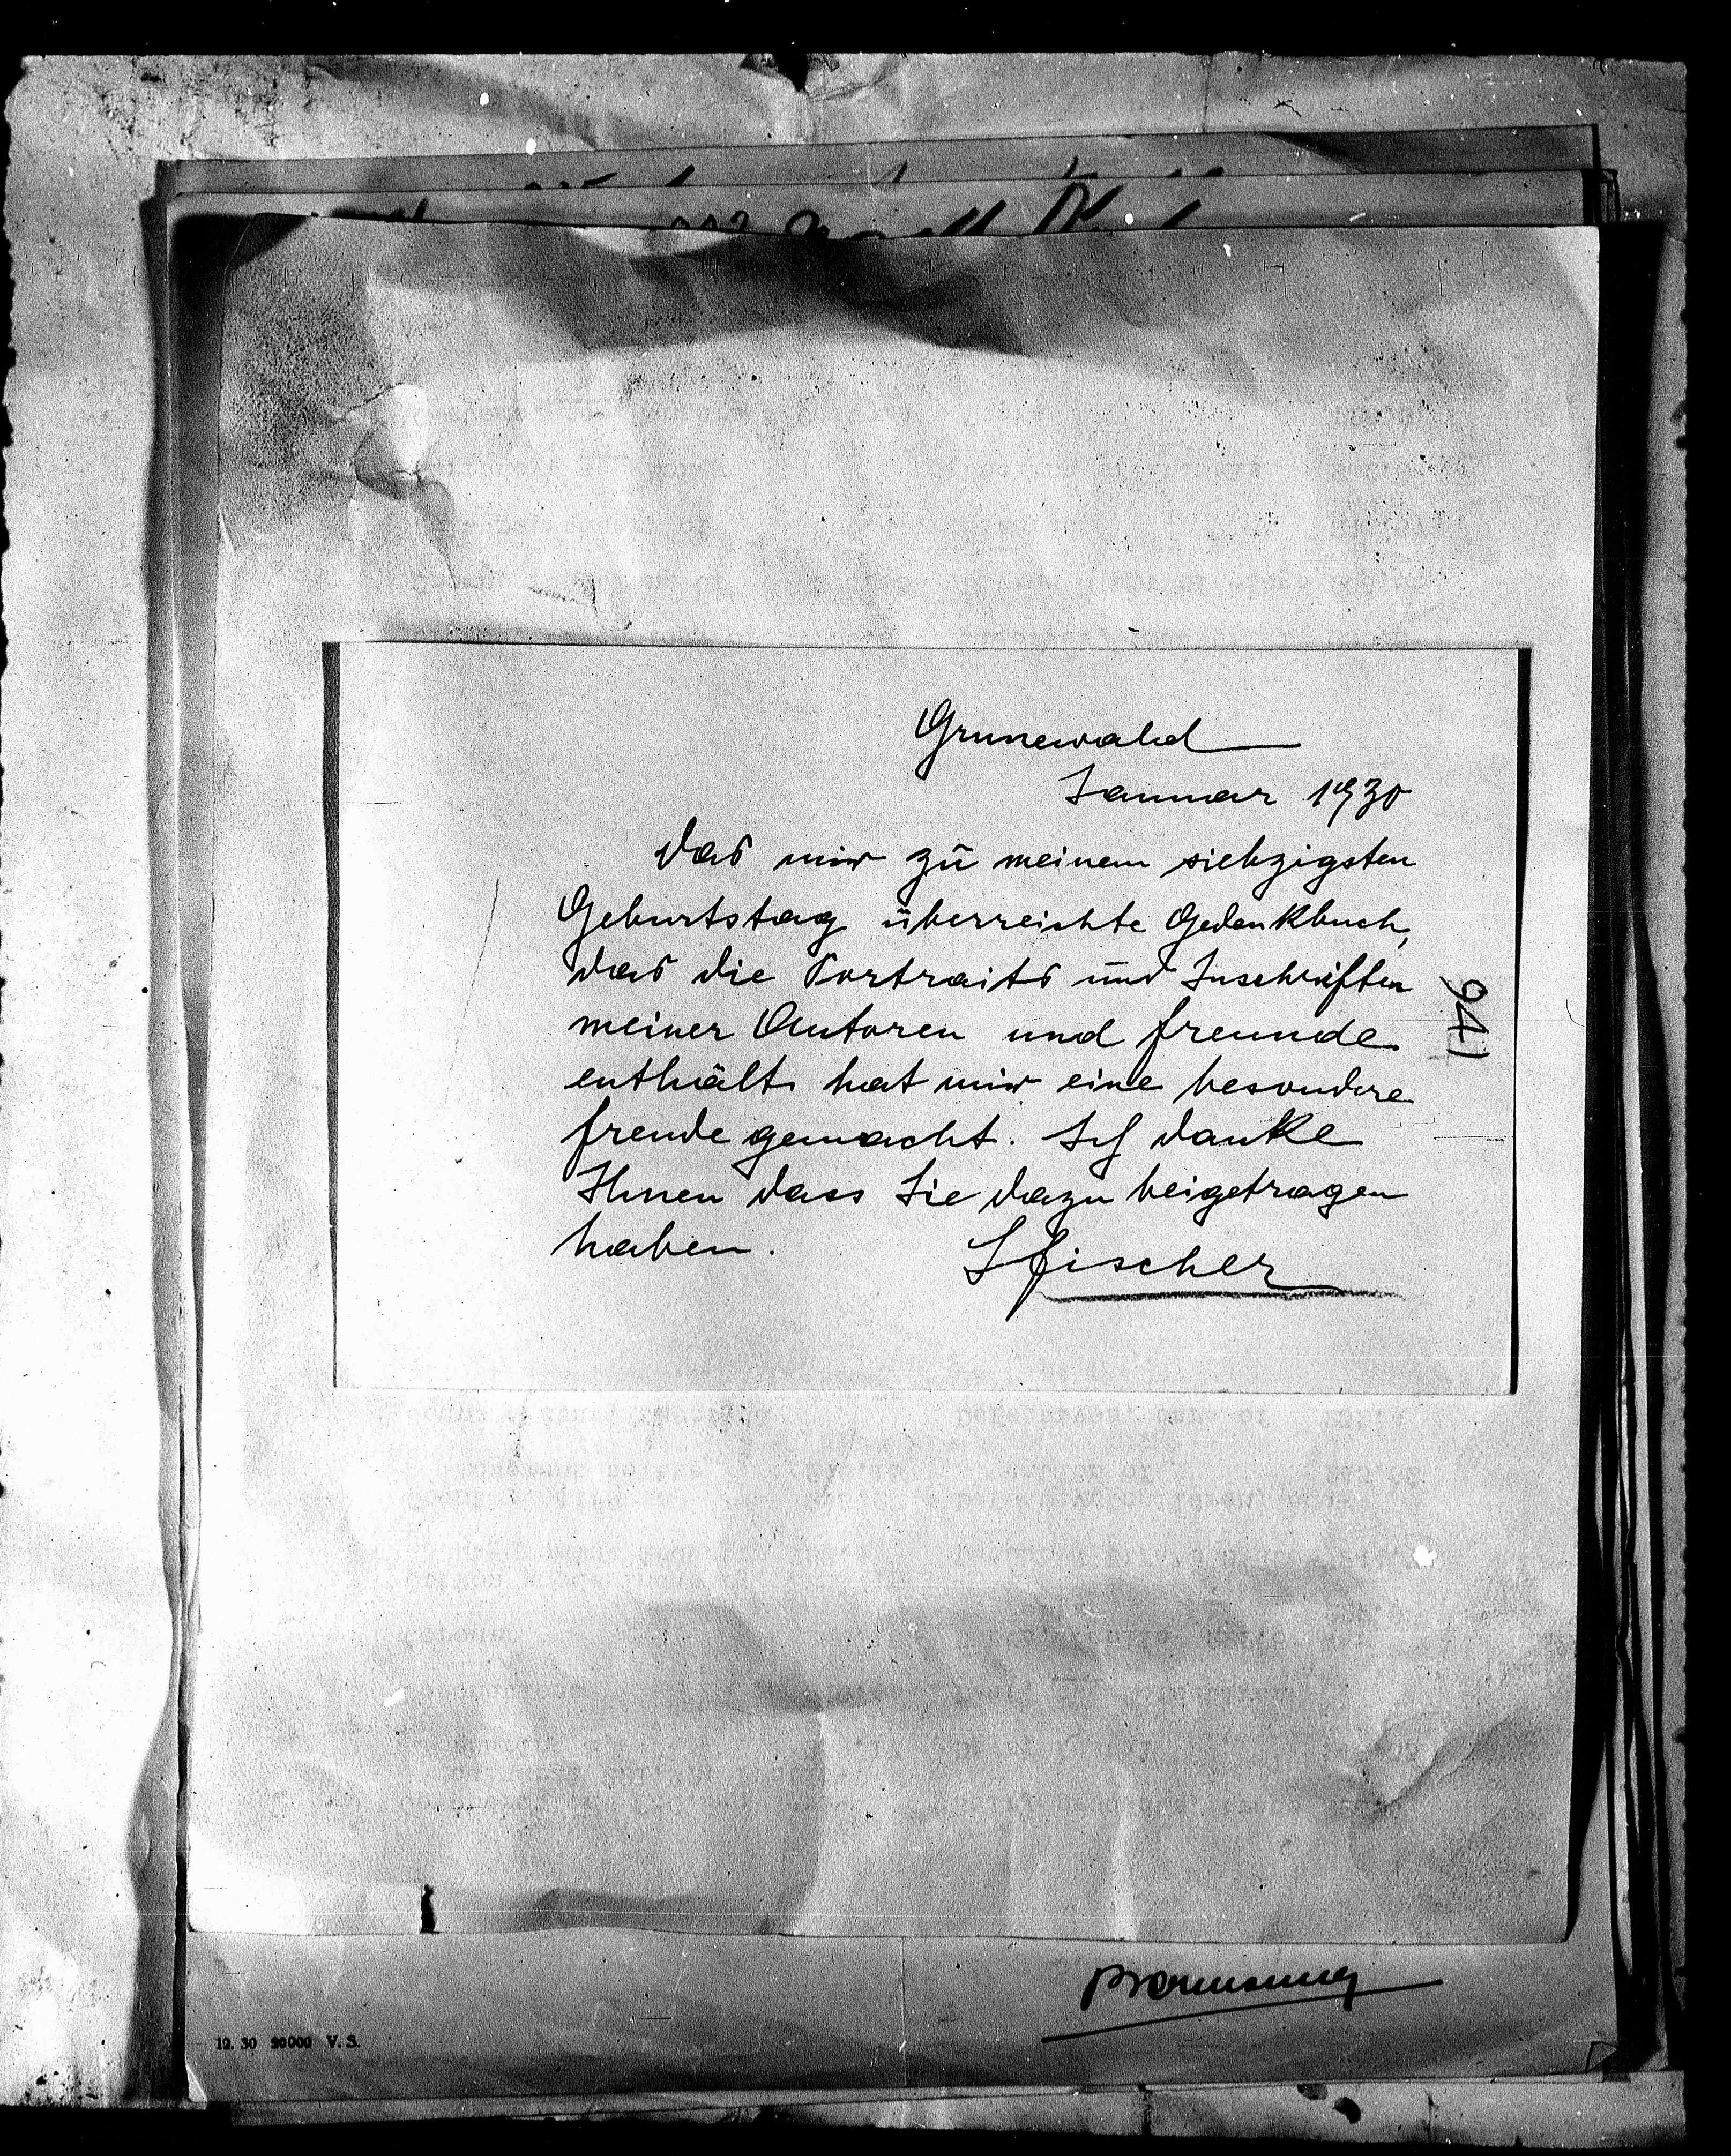 Grunewald
Januar 1930
Das mir zu meinem siebzigsten
Geburtstag überreichte Gedenkbuch,
das die Portraits und Inschriften
meiner Autoren und Freunde
enthält hat mir eine besondere
Freude gemacht. Ich danke
Ihnen dass Sie dazu beigetragen
haben.
SFischer
941
12. 30 90000 V. S.